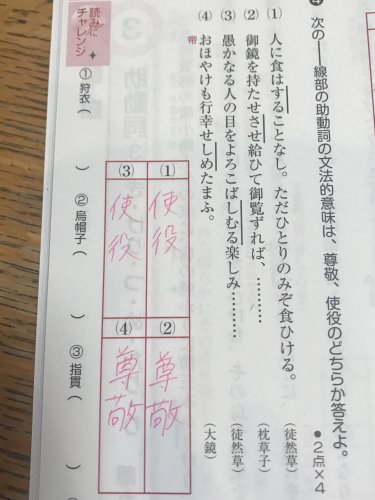 4 次の――線部の助動詞の文法的意味は、尊敬、使役のどちらか答えよ。
●2点×4
(1) 人に食はすることなし。ただひとりのみぞ食ひける。(徒然草)
(2) 御鏡を持たせさせ給ひて御覧ずれば、(枕草子)
(3) 愚かなる人の目をよろこばしむる楽しみ………(徒然草)
(4) おほやけも行幸せしめたまふ。(大鏡)
帝
(1) 使役
(2) 尊敬
(3) 使役
(4) 尊敬
読みにチャレンジ
① 狩衣( )
② 烏帽子( )
③ 指貫(